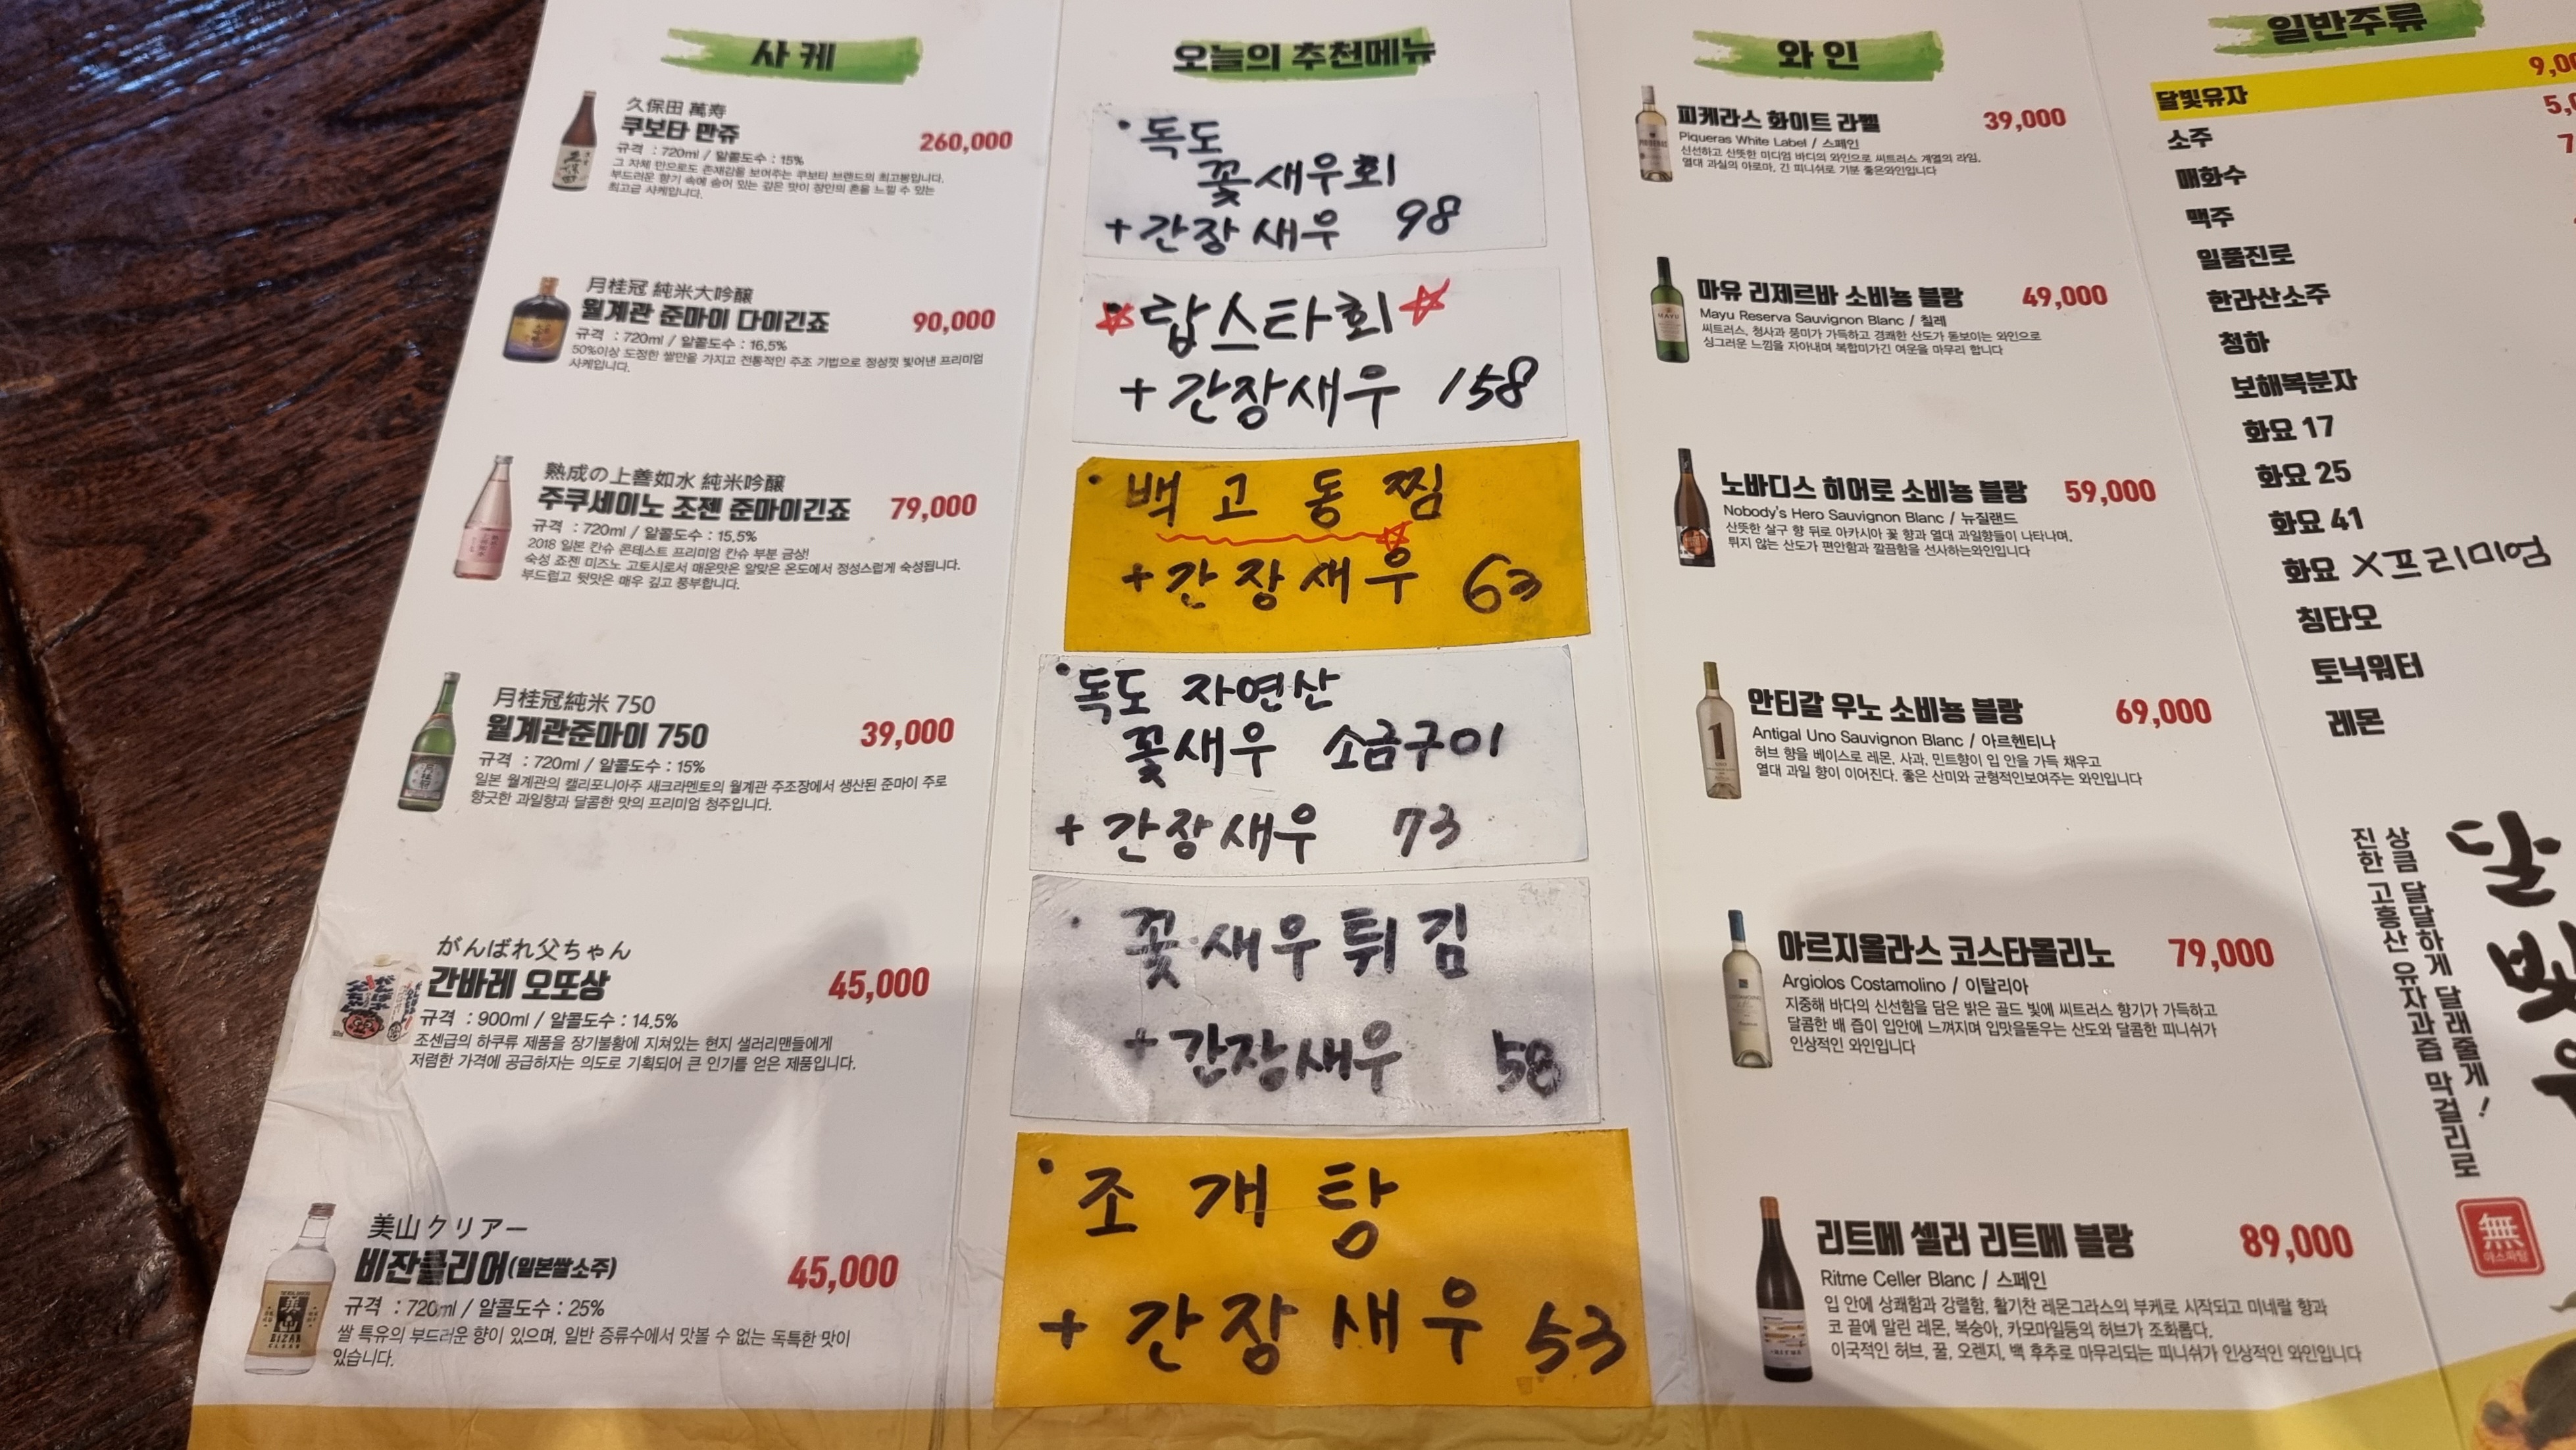 사케
久保田 萬寿
쿠보타 만쥬
260,000
규격 : 720ml / 알콜도수 : 15%
그 자체 만으로도 존재감을 보여주는 쿠보타 브랜드의 최고봉입니다.
부드러운 향기 속에 숨어 있는 깊은 맛이 장인의 혼을 느낄 수 있는
최고급 사케입니다.
月桂冠 純米大吟醸
월계관 준마이 다이긴죠
90,000
규격 : 720ml / 알콜도수 : 16.5%
50%이상 도정한 쌀만을 가지고 전통적인 주조 기법으로 정성껏 빚어낸 프리미엄
사케입니다.
熟成の上善如水 純米吟醸
주쿠세이노 조젠 준마이긴죠
79,000
규격 : 720ml / 알콜도수 : 15.5%
2018 일본 칸슈 콘테스트 프리미엄 칸슈 부분 금상!
숙성 죠젠 미즈노 고토시로서 매운맛은 알맞은 온도에서 정성스럽게 숙성됩니다.
부드럽고 뒷맛은 매우 깊고 풍부합니다.
月桂冠純米 750
월계관준마이 750
39,000
규격 : 720ml / 알콜도수 : 15%
일본 월계관의 캘리포니아주 새크라멘토의 월계관 주조장에서 생산된 준마이 주로
향긋한 과일향과 달콤한 맛의 프리미엄 청주입니다.
がんばれ父ちゃん
간바레 오또상
45,000
규격 : 900ml / 알콜도수 : 14.5%
조센급의 하쿠류 제품을 장기불황에 지쳐있는 현지 샐러리맨들에게
저렴한 가격에 공급하자는 의도로 기획되어 큰 인기를 얻은 제품입니다.
美山 クリアー
비잔클리어(일본쌀소주)
45,000
규격 : 720ml / 알콜도수 : 25%
쌀 특유의 부드러운 향이 있으며, 일반 증류수에서 맛볼 수 없는 독특한 맛이
있습니다.
오늘의 추천메뉴
독도
꽃새우회
+간장새우 98
랍스타회
+간장새우 158
백고동찜
+간장새우 63
독도 자연산
꽃새우 소금구이
+간장새우 73
꽃새우튀김
+간장새우 58
조개탕
+간장새우 53
와인
피케라스 화이트 라벨
39,000
Piqueras White Label / 스페인
신선하고 산뜻한 미디엄 바디의 와인으로 씨트러스 계열의 라임,
열대 과실의 아로마, 긴 피니쉬로 기분 좋은와인입니다
마유 리제르바 소비뇽 블랑
49,000
Mayu Reserva Sauvignon Blanc / 칠레
씨트러스, 청사과 풍미가 가득하고 경쾌한 산도가 돋보이는 와인으로
싱그러운 느낌을 자아내며 복합미가긴 여운을 마무리 합니다
노바디스 히어로 소비뇽 블랑
59,000
Nobody's Hero Sauvignon Blanc / 뉴질랜드
산뜻한 살구 향 뒤로 아카시아 꽃 향과 열대 과일향들이 나타나며,
튀지 않는 산도가 편안함과 깔끔함을 선사하는와인입니다
안티갈 우노 소비뇽 블랑
69,000
Antigal Uno Sauvignon Blanc / 아르헨티나
허브 향을 베이스로 레몬, 사과, 민트향이 입 안을 가득 채우고
열대 과일 향이 이어진다. 좋은 산미와 균형적인보여주는 와인입니다
아르지올라스 코스타몰리노
79,000
Argiolos Costamolino / 이탈리아
지중해 바다의 신선함을 담은 밝은 골드 빛에 씨트러스 향기가 가득하고
달콤한 배 즙이 입안에 느껴지며 입맛을돋우는 산도와 달콤한 피니쉬가
인상적인 와인입니다
리트메 셀러 리트메 블랑
89,000
Ritme Celler Blanc / 스페인
입 안에 상쾌함과 강렬함, 활기찬 레몬그라스의 부케로 시작되고 미네랄 향과
코 끝에 말린 레몬, 복숭아, 카모마일등의 허브가 조화롭다.
이국적인 허브, 꿀, 오렌지, 백 후추로 마무리되는 피니쉬가 인상적인 와인입니다
일반주류
달빛유자
소주
매화수
맥주
일품진로
한라산소주
청하
보해복분자
화요 17
화요 25
화요 41
화요 X프리미엄
칭타오
토닉워터
레몬
상큼 달달하게 달래줄게!
진한 고흥산 유자과즙 막걸리로
달빛유
無
아스파탐